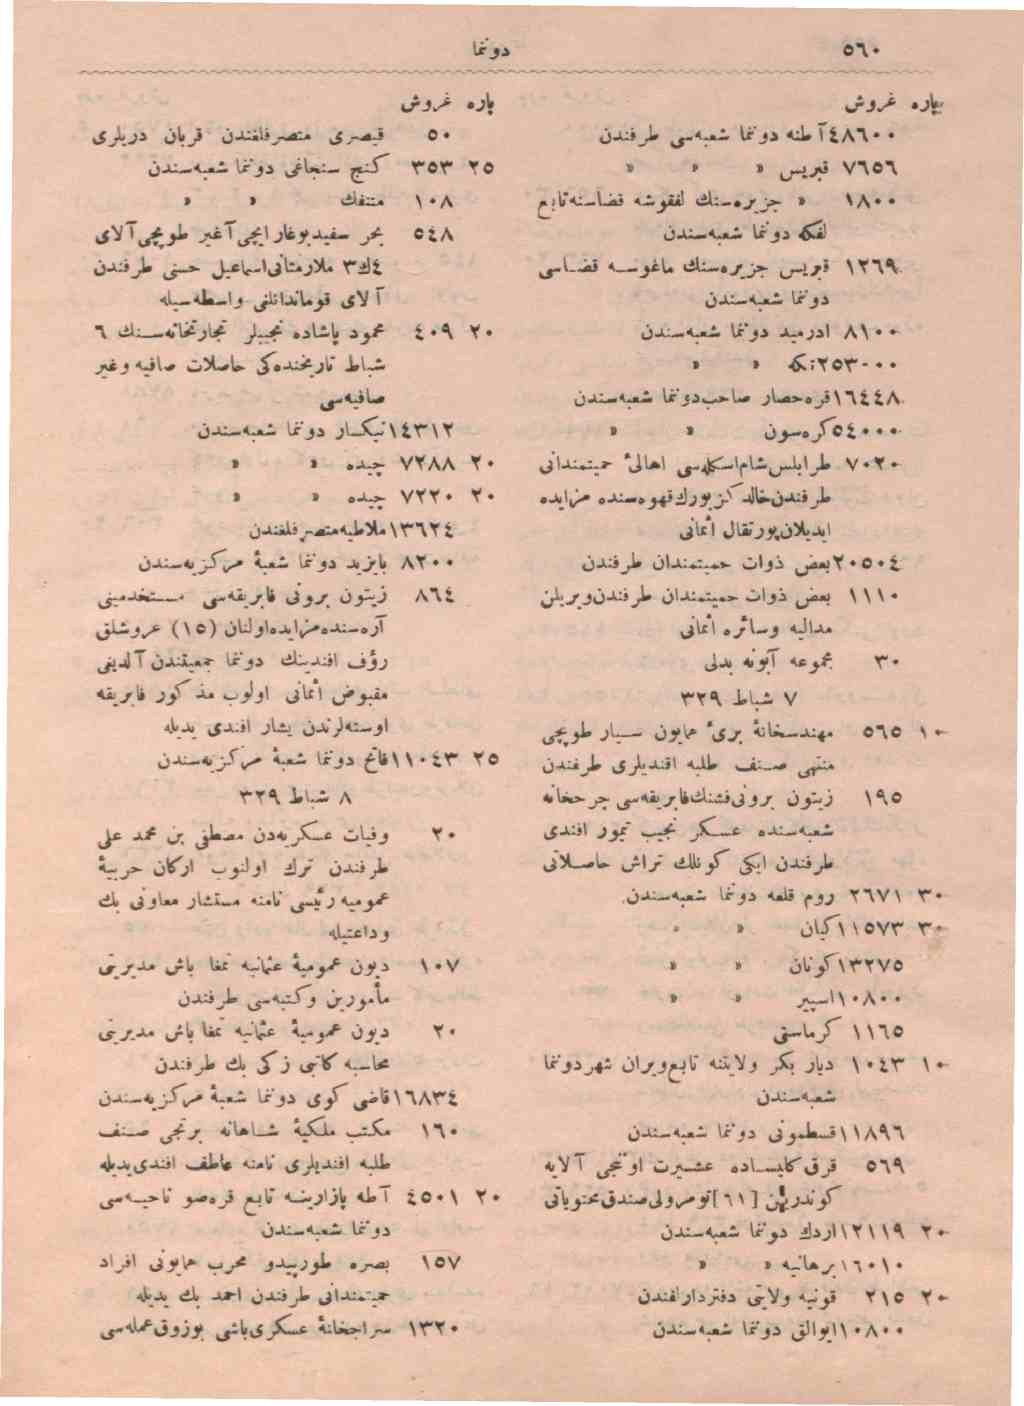 ٥٦٠ دوننما
پاره غروش
٤٨٦٠٠ آطنه دوننما شعبه‌سی طرفندن
٧٦٥٦ قبریس » » »
١٨٠٠ » جزیره‌سنك لفقوشه قضاسنه تابع
لفکه دوننما شعبه‌سندن
١٢٦٩ قبریس جزیره‌سنك ماغوسه قضاسی
دوننما شعبه‌سندن
٨١٠٠ ادرمید دوننما شعبه‌سندن
٢٥٣٠٠٠ تکه » »
١٦٤٤٨ قره‌حصار صاحب دوننما شعبه‌سندن
٥٤٠٠٠ کره‌سون » »
٧٠٢٠ طرابلس‌شام‌اسکله‌سی اهالیٔ حمیتمندانی
طرفندن‌خالد قهوه‌سنده مزایده
ایدیلان‌پورتقال اثمانی
٢٠٥٠٤ بعض ذوات حمیتمندان طرفندن
١١١٠ بعض ذوات حمیتمندان طرفندن‌ویریلن
مدالیه وسائره اثمانی
٣٠ مجموعه آبونه بدلی
٧ شباط ٣٢٩
١٠ ٥٦٥ مهندسخانهٔ بریٔ همایون سیار طوپجی
منتهی صنف طلبه افندیلری طرفندن
١٩٥ زیتون برونی‌فشنك‌فابریقه‌سی چرخخانه
شعبه‌سنده عسکر نجیب تیمور افندی
طرفندن ایکی کونلك تراش حاصلاتی
٣٠ ٢٦٧١ روم قلعه دوننما شعبه‌سندن
٣٠ ١١٥٧٣ کبان » »
١٣٢٧٥ کونان » »
١٠٨٠٠ اسپیر » »
١١٦٥ کرماستی
١٠ ١٠٤٣ دیار بکر ولایتنه تابع‌ویران شهردوننما
شعبه‌سندن
١١٨٩٦ قسطمونی دوننما شعبه‌سندن
٥٦٩ قرق‌کلیساده عشیرت اونجی آلایه
کوندریلن [٦١] نومرولی‌صندق‌محتویاتی
٢٠ ١٢١١٩ اردك دوننما شعبه‌سندن
١٦٠١٠ برهانیه » »
٢٠ ٢١٥ قونیه ولایتی دفتردارلغندن
١٠٨٠٠ ایوالق دوننما شعبه‌سندن
پاره غروش
٥٠ قیصری متصرفلغندن قربان دریلری
٢٥ ٣٥٣ کنج سنجاغی دوننما شعبه‌سندن
١٠٨ منتفك » »
٥٤٨ بحر سفیدبوغازایچی‌آغیر طوپجی‌آلای
٤ك٣ ملازمثانی‌اسماعیل حسنی طرفندن
آلای قوماندانلغی واسطه‌سیله
٢٠ ٤٠٩ محمود پاشاده نجیبلر تجارتخانه‌سنك ٦
شباط تاریخنده‌کی حاصلات صافیه وغیر
صافیه‌سی
١٤٣١٢ نیکسار دوننما شعبه‌سندن
٢٠ ٧٢٨٨ چیده » »
٢٠ ٧٢٢٠ چیده » »
١٣٦٢٤ ملاطیه‌متصرفلغندن
٨٢٠٠ بایزید دوننما شعبهٔ مرکزیه‌سندن
٨٦٤ زیتون برونی فابریقه‌سی مستخدمینی
آره‌سنده‌مزایده‌اولنان (١٥) غروشلق
رؤف افندینك دوننما جمعیتندن آلدیغی
مقبوض اثمانی اولوب مذکور فابریقه
اوسته‌لرندن یشار افندی یدیله
٢٥ ١١٠٤٣ فاتح دوننما شعبهٔ مرکزیه‌سندن
٨ شباط ٣٢٩
٢٠ وفیات عسکریه‌دن مصطفی بن محمد علی
طرفندن ترك اولنوب ارکان حربیهٔ
عمومیه رئیسی نامنه مستشار معاونی بك
وداعتیله
١٠٧ دیون عمومیهٔ عثمانیه تمغا باش مدیریتی
مأمورین وکتبه‌سی طرفندن
٢٠ دیون عمومیهٔ عثمانیه تمغا باش مدیریتی
محاسبه کاتبی زکی بك طرفندن
١٦٨٣٤ قاضی کوی دوننما شعبهٔ مرکزیه‌سندن
١٦٠ مکتب ملکیهٔ شاهانه برنجی صنف
طلبه افندیلری نامنه عاطف افندی‌یدیله
٢٠ ٤٥٠١ آطه پازارینه تابع قره‌صو ناحیه‌سی
دوننما شعبه‌سندن
١٥٧ بصره طورپیدو مخرب همایونی افراد
حمیتمندانی طرفندن احمد بك یدیله
١٣٢٠ سراجخانهٔ عسکری‌باشی بوزوق‌عمله‌سی